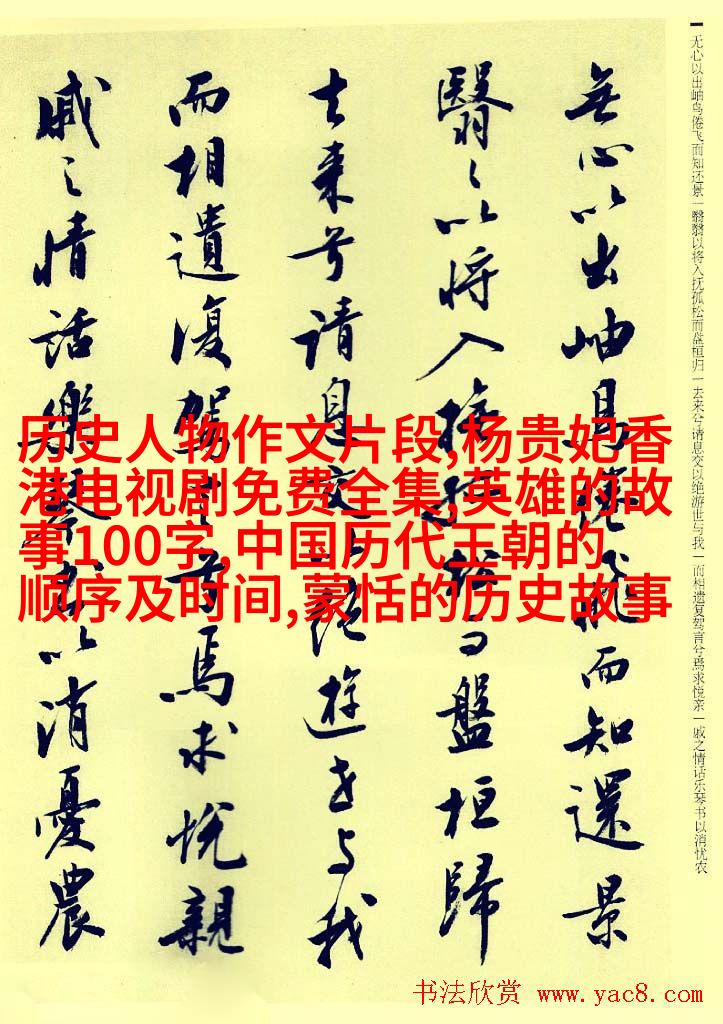 无心以出岫鸟倦飞而知还景一翳翳以将入抚孤松而盘桓归一去来兮请息交以绝游世与我一而相遗复驾言兮焉求悦亲一戚之情话乐琴书以消忧农
無心以出岫鳥倦飛而知還景
翳〻以將入撫孤松而盤桓歸
去来兮请息交以絕遊世与我
而相遺復駕言兮焉求悅親
戚〻情話樂琴書以消憂農
历史人物作文片段,杨贵妃香
港电视剧免费全集,英雄的故
事100字,中国历代王朝的
顺序及时间,蒙恬的历史故事
书法欣赏 www.yac8.com